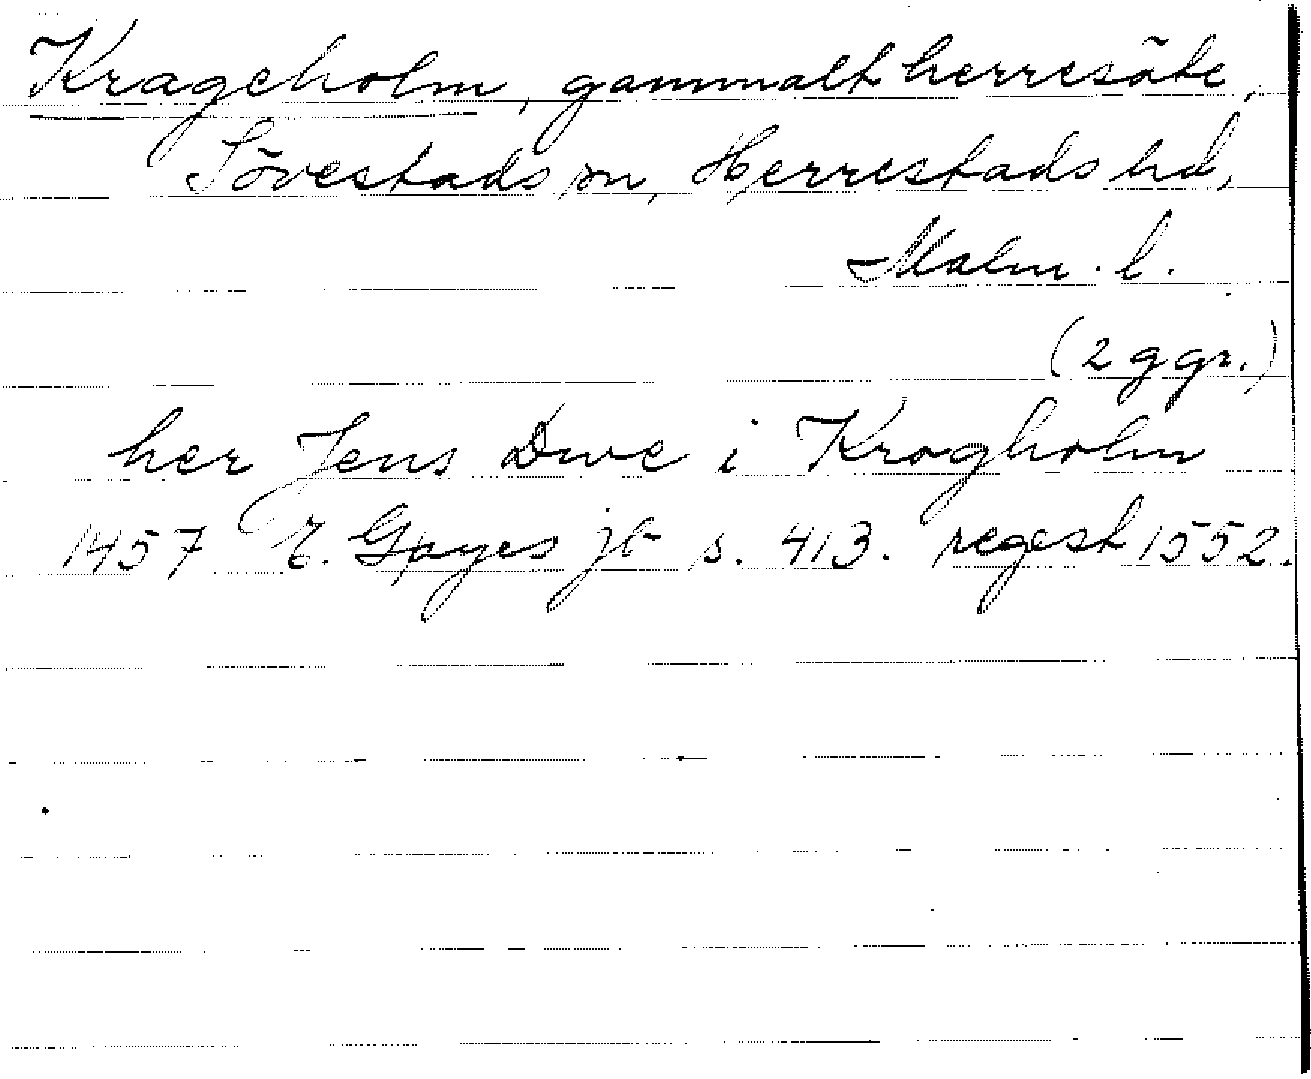 Krageholm, gammalt herresäte,
Sövestads sn, Herrestads hd,
Malm. l.
(2 ggr.)
her Jens Dwe i Krogholm
1457 E. Gøyes jb s. 413. regest 1552.